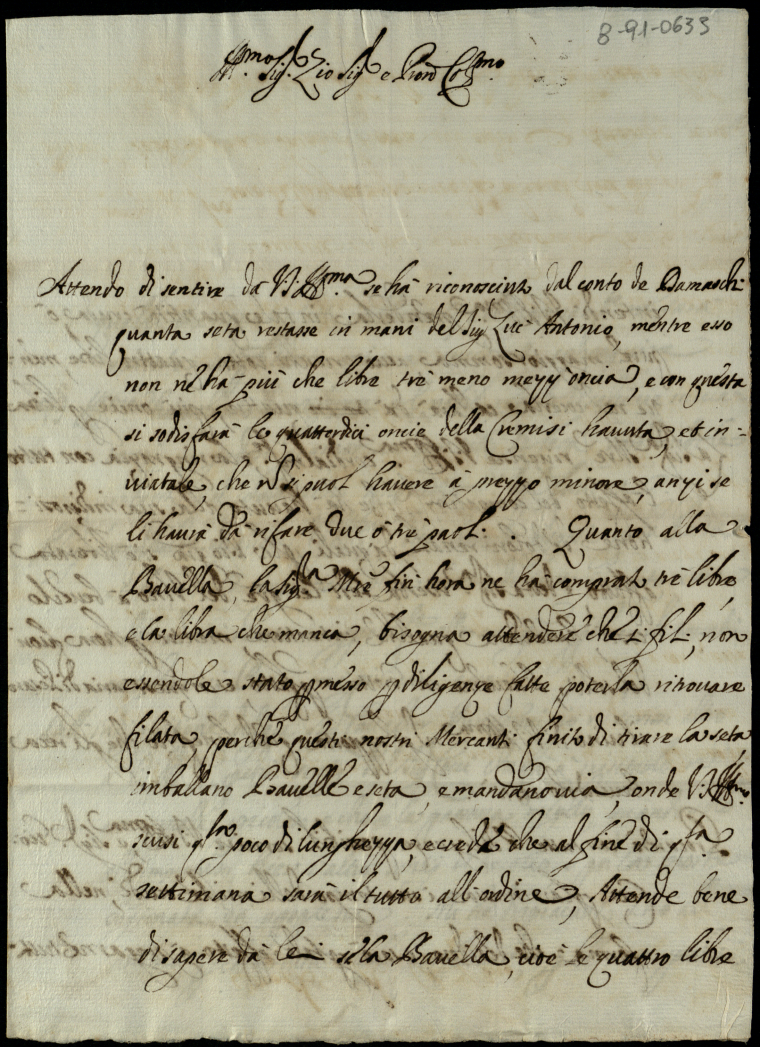 8-91-0633
Ill.mo Sig.r Zio Sig.r e Pron Col.mo
Attendo di sentire da V.S. Ill.ma se ha riconosciuto dal conto de Damaschi
quanta seta restasse in mani del Sig.r Luc' Antonio, mentre esso
non ne ha più che libre trè meno mezz'oncia, e con questa
si sodisfarà le quattordici oncie della Cremisi havuta, et in=
viatale, che nō si puol havere à prezzo minore, anzi se
li haurà dà rifare due ò tre paoli. Quanto alla
Bavella, la Sig.ra Mre fin hora ne ha comprato trè libre,
e la libra che manca, bisogna attendere che si fili, non
essendole stato pmesso p diligenze fatte poterla ritrovare
filata, perche questi nostri Mercanti finito di tirare la seta
imballano Bavelle e seta, e mandano via, onde V.S. Ill.ma
scusi qsta poco di lunghezza, e creda che al fine di qsta
settimana sarà il tutto all'ordine, Attende bene
di sapere dà lei se la Bavella, cioè le quattro libre